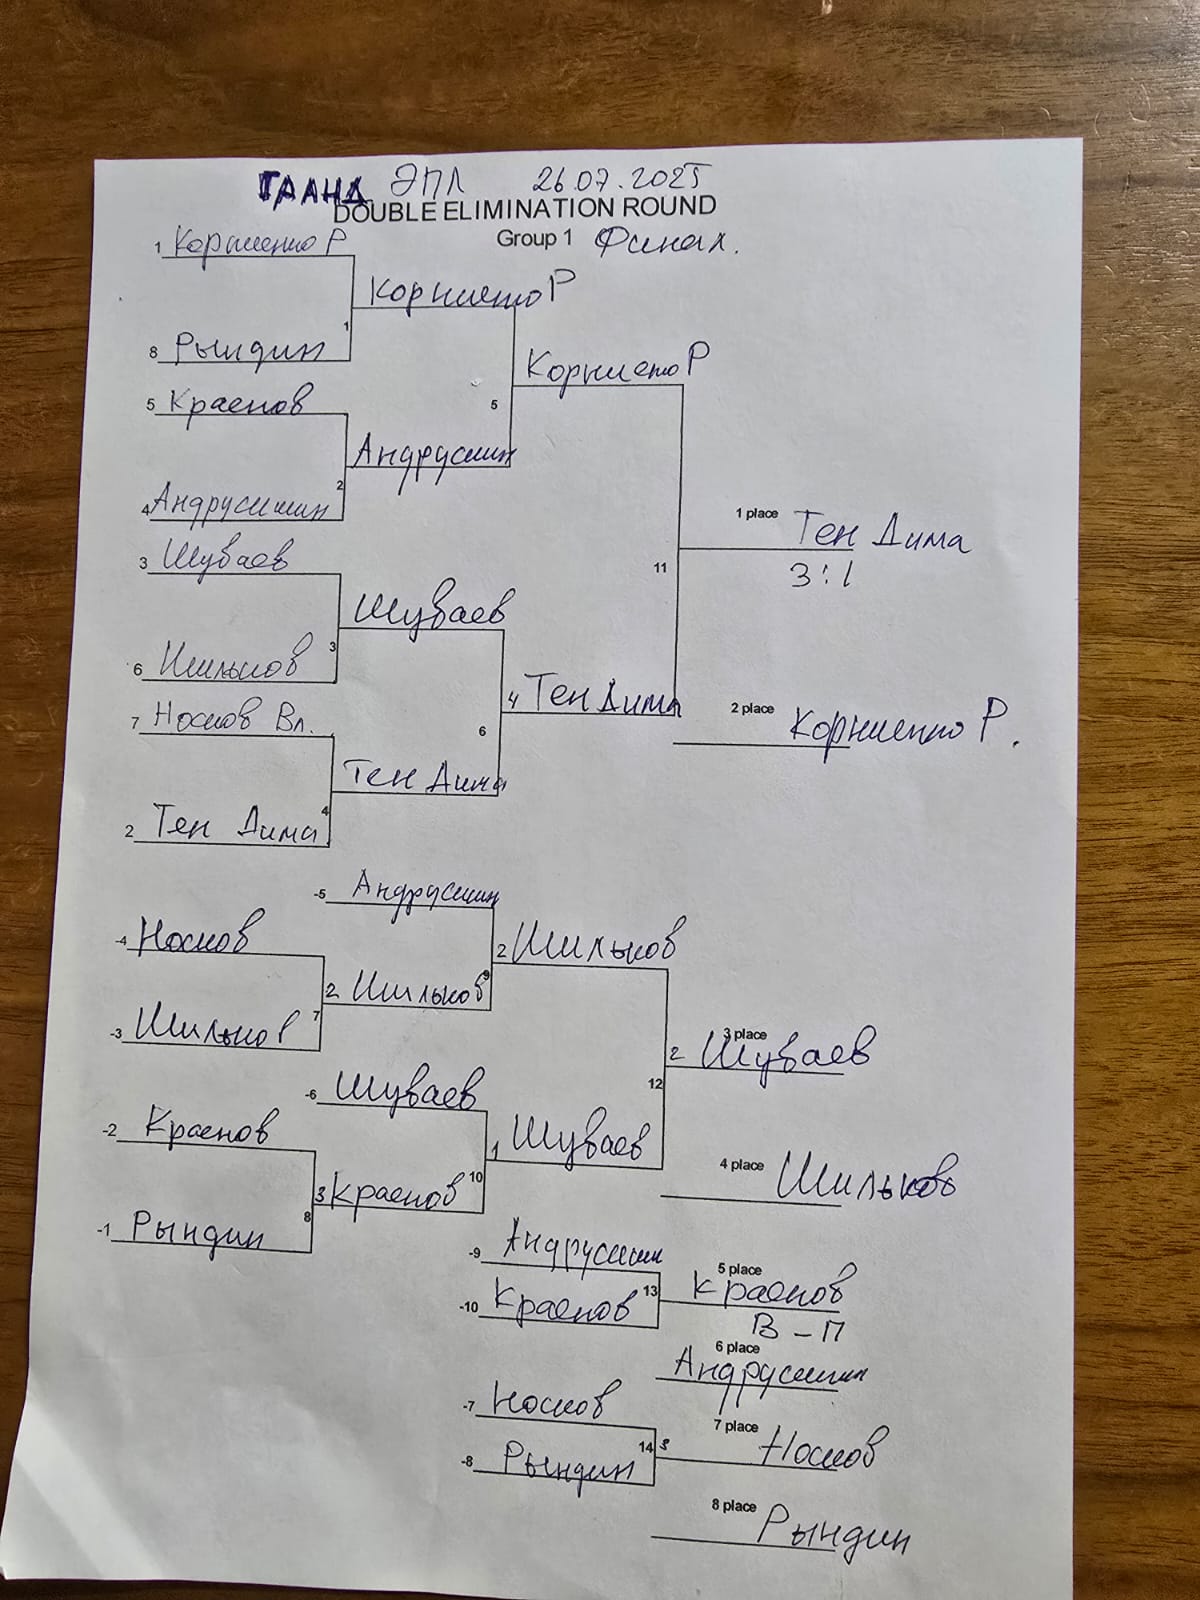 ГРАНД ЭПЛ 26.07.2025
DOUBLE ELIMINATION ROUND
Group 1 Финал.
1 Корниенко Р
Корниенко Р
1
8 Рындин
Корниенко Р
5
5 Краснов
Андрусишин
2
4 Андрусишин
1 place Тен Дима
3:1
11
3 Шуваев
Шуваев
3
6 Шильков
4 Тен Дима
2 place Корниенко Р.
6
7 Носков Вл.
Тен Дима
4
2 Тен Дима
-5 Андрусишин
-4 Носков
2 Шильков
9
2 Шильков
7
-3 Шильков
3 place
2 Шуваев
12
-6 Шуваев
-2 Краснов
1 Шуваев
10
4 place Шильков
3 Краснов
8
-1 Рындин
-9 Андрусишин
5 place
13 Краснов
-10 Краснов
В - П
6 place
Андрусишин
-7 Носков
7 place
14 3 Носков
-8 Рындин
8 place Рындин